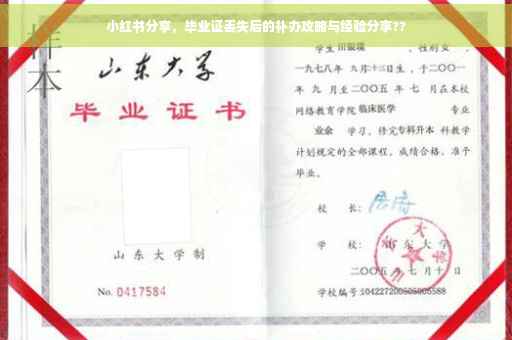 小红书分享，毕业证丢失后的补办攻略与经验分享??
样
本
山东大学
毕业证书
山东大学制
No. 0417584
学生田银瑞 ，性别女 ，
一九七八年 九月十三日生，于二〇〇一
年 九 月至二〇〇五 年 七 月在本校
网络教育学院临床医学 专业
业余 学习，修完专科升本 科教学
计划规定的全部课程，成绩合格，准予
毕业。
校 长：
学 校：山东大学
二〇〇五 年 七 月 十 日
学校编号:104227200505005588